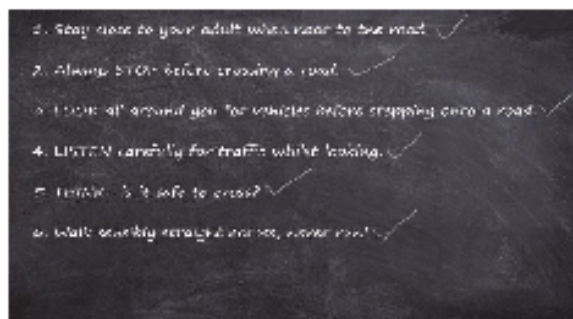 1. Stay close to your adult when near to the road.
2. Always STOP before crossing a road.
3. LOOK all around you for vehicles before stepping onto a road.
4. LISTEN carefully for traffic whilst looking.
5. THINK - is it safe to cross?
6. Walk sensibly straight across, never run!